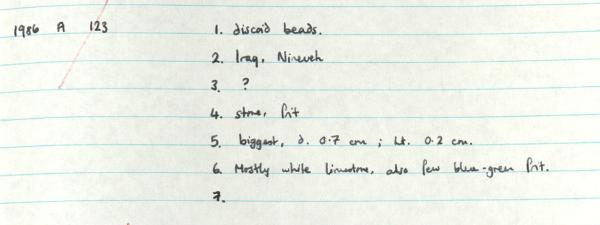 1986 A 123 1. discoid beads.
2. Iraq, Nineveh
3. ?
4. stone, frit
5. biggest, d. 0.7 cm ; ht. 0.2 cm.
6. Mostly white limestone, also few blue-green frit.
7.